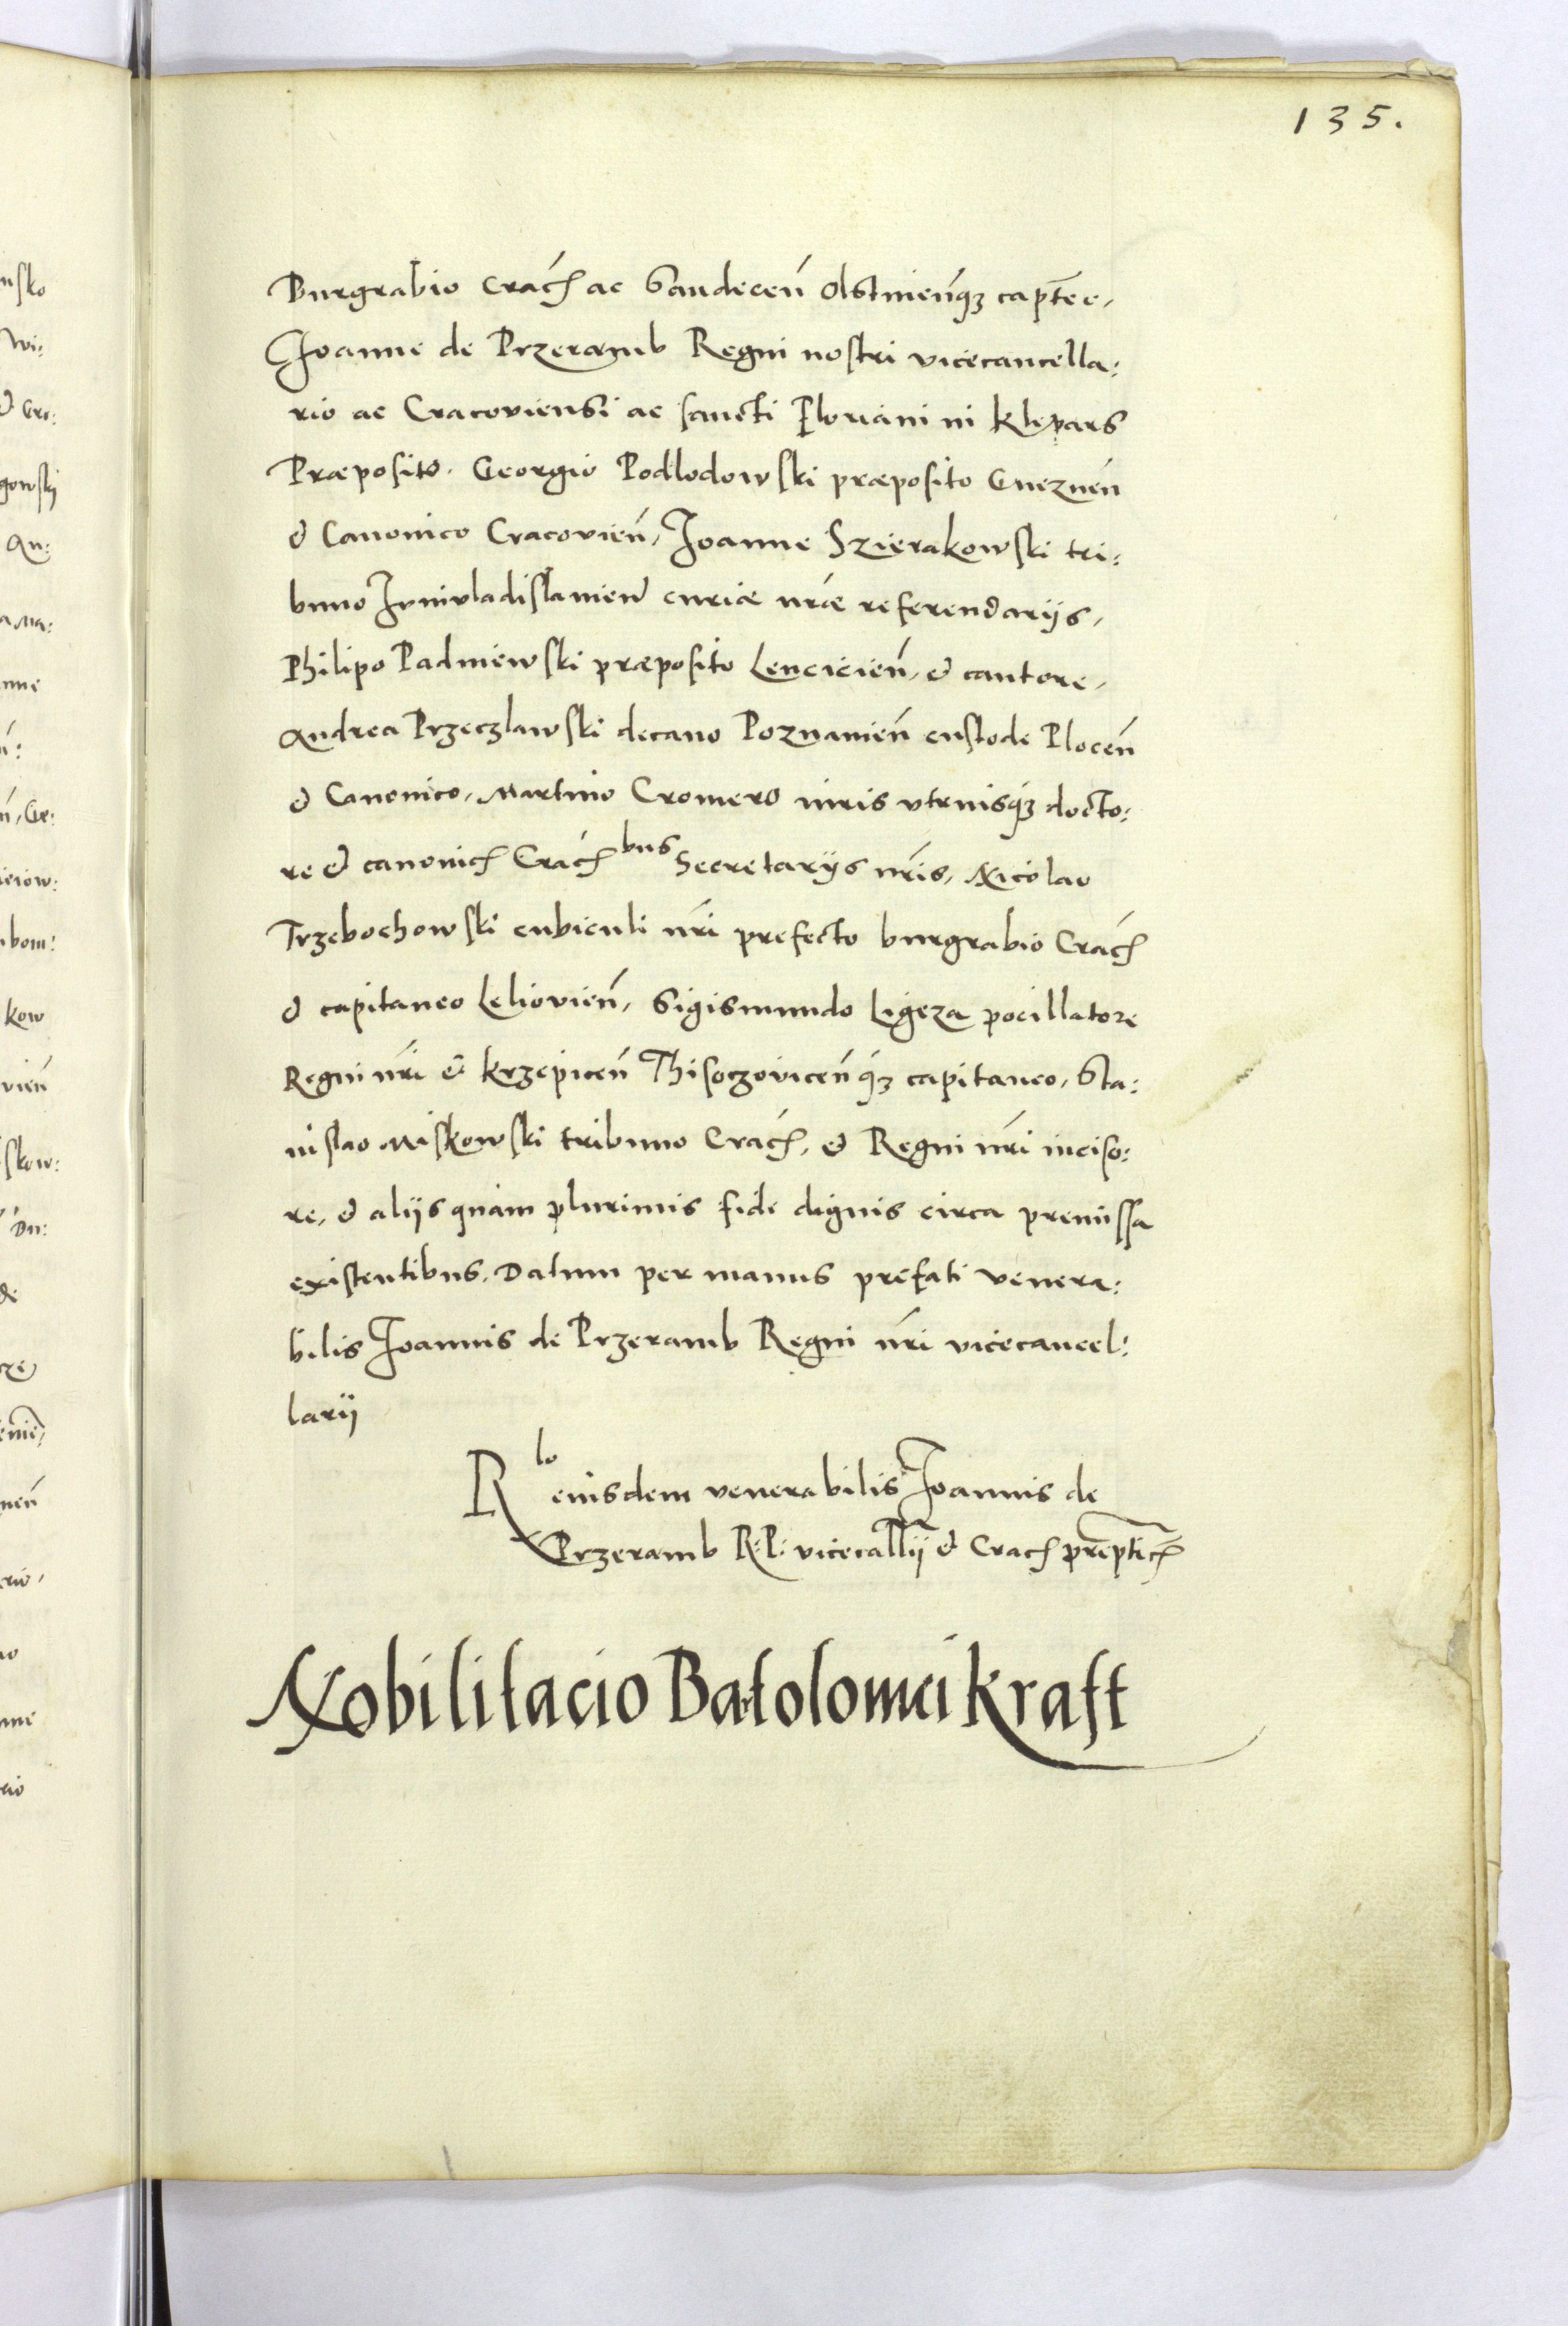 135.
Burgrabio Crac̄ ac Sandeceń Olstinieńqȝ capt̄ee,
Joanne de Przeramb Regni nostri vicecancella:
rio ac Cracoviensi ac sancti Floriani in Klepars
Præposito. Georgio Podlodowski præposito Gnezneń
et Canonico Cracovień, Joanne Szierakowski tri:
buno Junivladislavień curiæ nr̄æ referendarijs,
Philipo Padniewski præposito Lencicień, et cantore,
Andrea Przeczlawski decano Poznanień custode Ploceń
et Canonico, Martino Cromero iuris vtriusqȝ docto:
re et canonic̄ Crac̄bus Secretarijs nr̄is, Nicolao
Trzebochowski cubiculi nr̄i prefecto burgrabio Crac̄
et capitaneo Leliovień, Sigismundo Ligeza pocillatore
Regni nr̄i et Krzepiceń Thisoczoviceńqȝ capitaneo, Sta:
nislao Miskowski tribuno Crac̄, et Regni nr̄i inciso:
re, et alijs quam plurimis fide dignis circa premissa
existentibus. Datum per manus prefati venera:
bilis Joannis de Przeramb Regni nr̄i vicecancel:
larij
Rlo eiusdem venerabilis Joannis de
Przeramb R: P: vicecallij et Crac̄
Nobilitacio Bartolomei Kraft